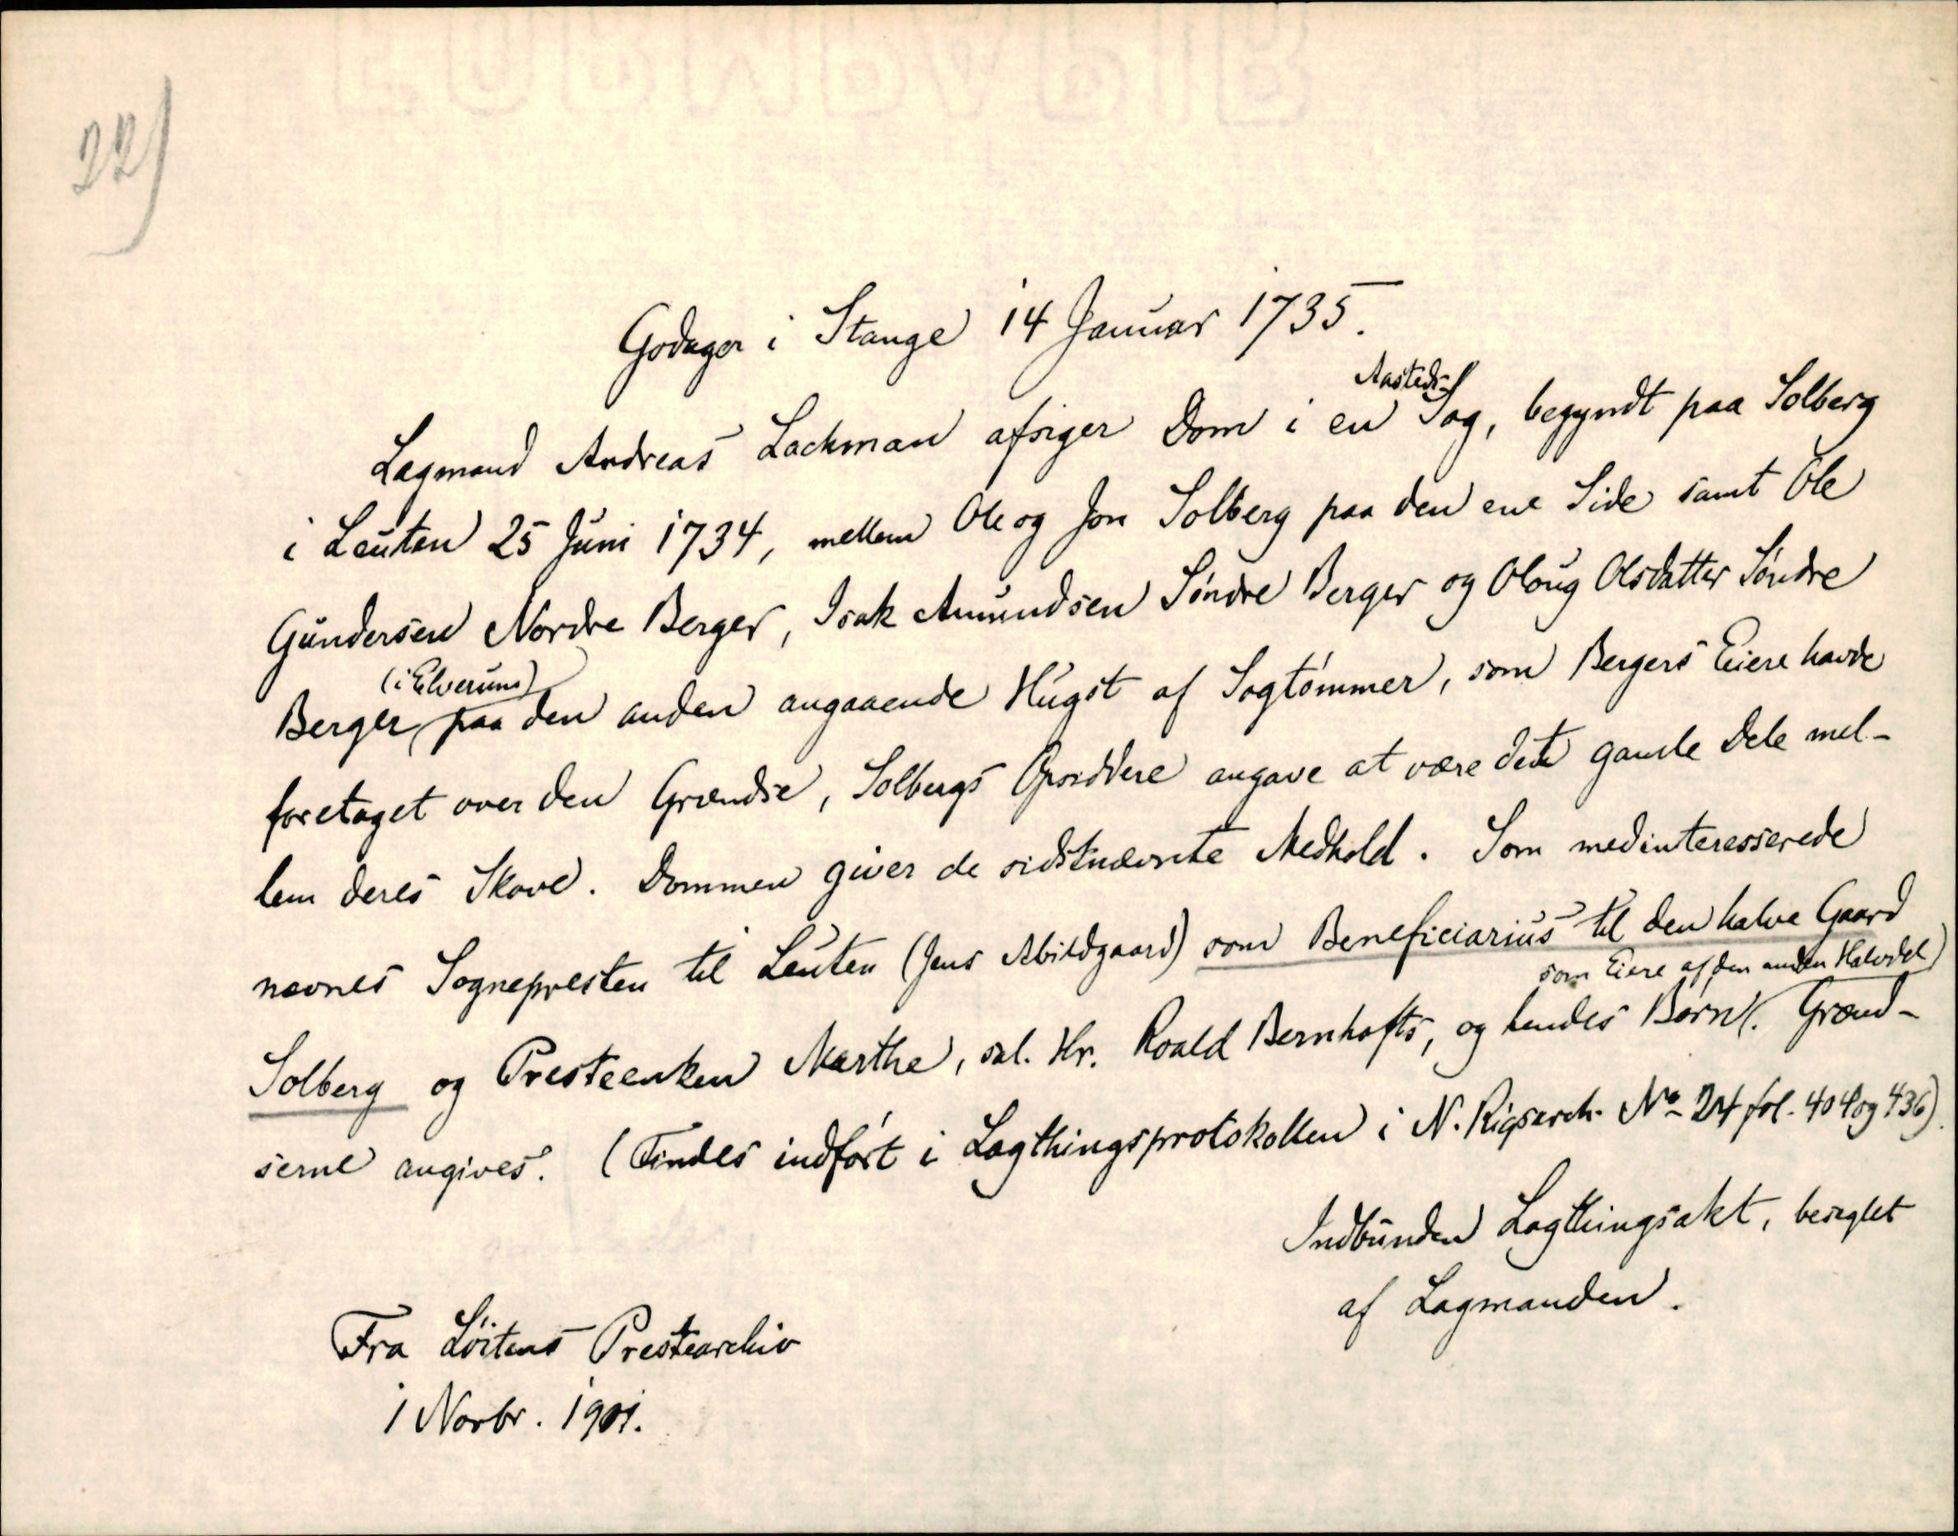 22)
Godager i Stange 14 Januar 1735.
Lagmand Andreas Lackman afsiger Dom i en Aasteds-Sag, begyndt paa Solberg
i Leuten 25 Juni 1734, mellem Ole og Jon Solberg paa den ene Side samt Ole
Gundersen Nordre Berger, Isak Amundsen Søndre Berger og Oloug Olsdatter Søndre
Berger (i Elverum) paa den anden angaaende Hugst af Sagtømmer, som Bergers Eiere havde
foretaget over den Grændse, Solbergs Opsiddere angave at være dete gamle Dele mel-
lem deres Skove. Dommen giver de sidstnævnte Medhold. Som medinteresserede
nævnes Sognepresten til Leuten (Jens Abildgaard) som Beneficiarius til den halve Gaard
Solberg og Presteenken Marthe, sal. Hr. Roald Bernhofts, og hendes Børn (som Eiere af den anden Halvdel). Grænd-
serne angives. (Findes indført i Lagthingsprotokollen i N. Rigsark. No 24 fol. 404 og 436).
Indbunden Lagthingsakt, beseglet
af Lagmanden.
Fra Løitens Prestearchiv
1 Novbr. 1901.